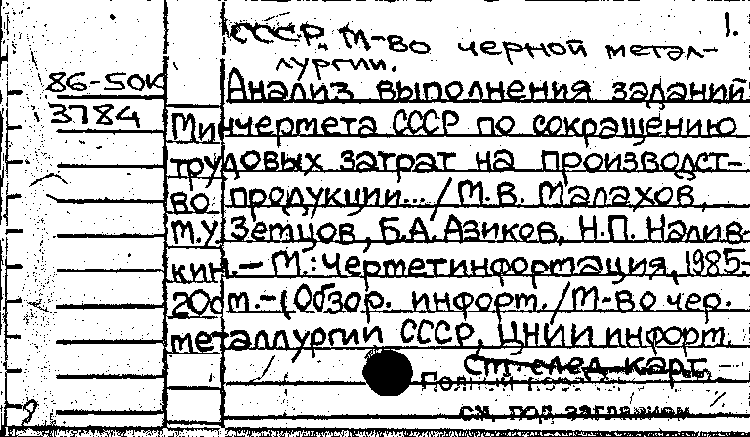 1.
СССР. М-во черной метал-
лургии.
86-50К
3784
Анализ выполнения заданий
Минчермета СССР по сокращению
трудовых затрат на производст-
во продукции... / М.В. Малахов,
М.У. Земцов, Б.А. Азиков, Н.П. Налив-
кин. – М.: Черметинформация, 1985-
20с м. – (Обзор. информ. / М-во чер.
металлургии СССР, ЦНИИ информ.
Ст. след. карт.
Полный
см. под заглавием